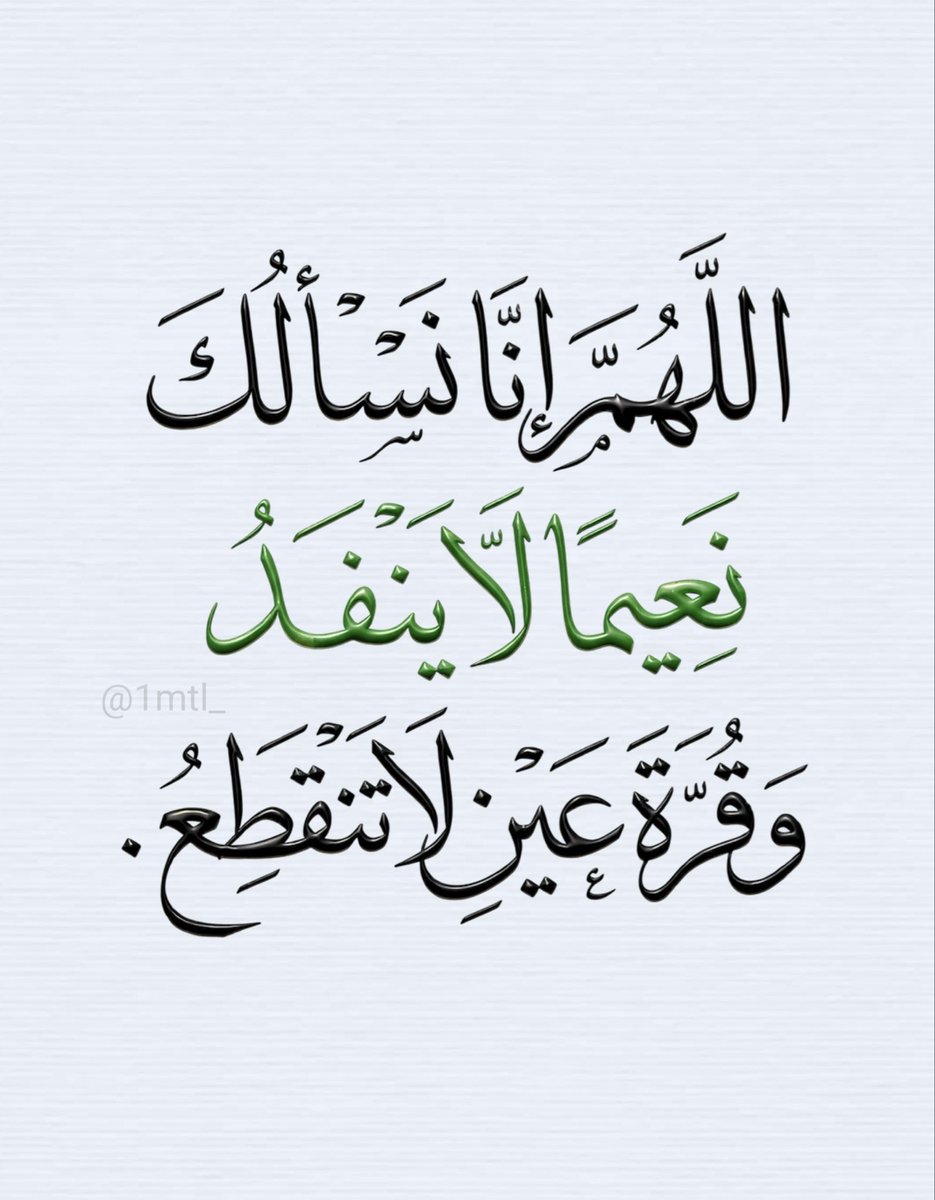 اللَّهُمَّ إِنَّا نَسْأَلُكَ
نَعِيمًا لَّا يَنْفَدُ
@1mtl_
وَقُرَّةَ عَيْنٍ لَا تَنْقَطِعُ.